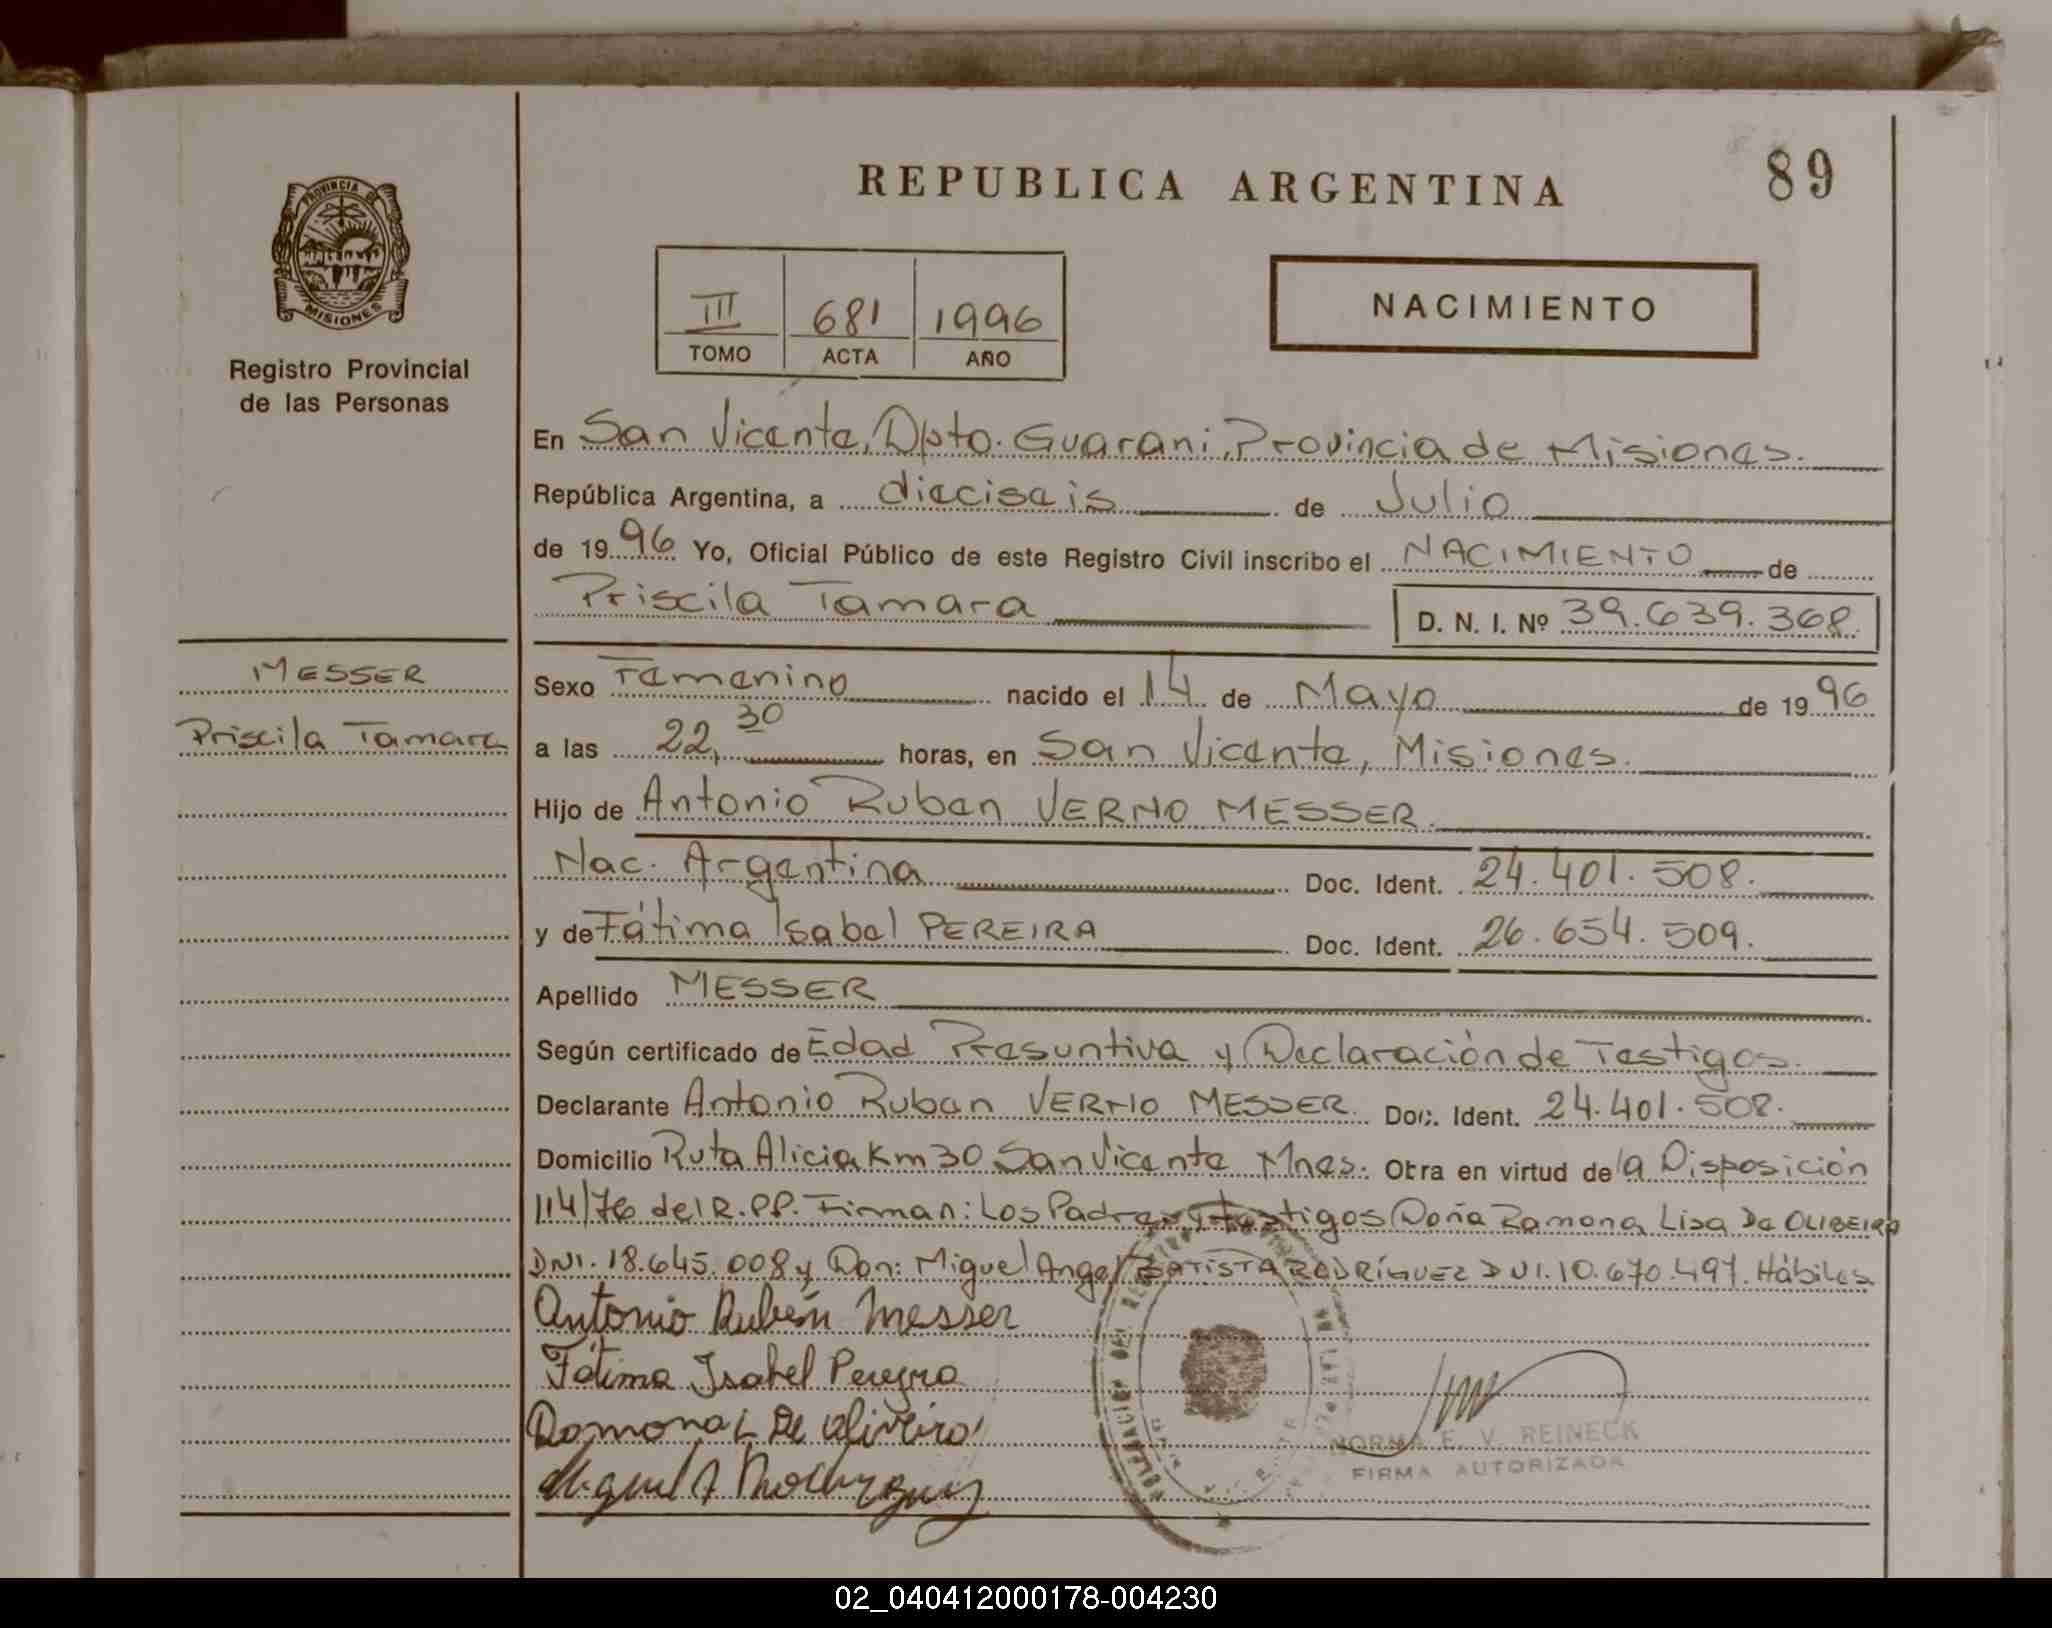 REPUBLICA ARGENTINA
89
PROVINCIA DE
MISIONES
Registro Provincial
de las Personas
III 681 1996
TOMO ACTA AÑO
NACIMIENTO
En San Vicente, Dpto. Guarani, Provincia de Misiones.
República Argentina, a dieciseis de Julio
de 1996 Yo, Oficial Público de este Registro Civil inscribo el NACIMIENTO de
Priscila Tamara D. N. I. Nº 39.639.368.
MESSER
Priscila Tamara
Sexo Femenino nacido el 14 de Mayo de 1996
a las 22,30 horas, en San Vicente, Misiones.
Hijo de Antonio Ruben VERNO MESSER.
Nac. Argentina Doc. Ident. 24.401.508.
y de Fátima Isabel PEREIRA Doc. Ident. 26.654.509.
Apellido MESSER
Según certificado de Edad Presuntiva y Declaración de Testigos.
Declarante Antonio Ruben VERNO MESSER. Doc. Ident. 24.401.508.
Domicilio Ruta Alicia Km 30 San Vicente Mnes. Obra en virtud de la Disposición
114/76 del R.PP. Firman: Los Padres y testigos Doña Ramona Lisa De OLIBEIRA
DNI. 18.645.008 y Don: Miguel Angel BATISTA RODRÍGUEZ DNI. 10.670.497. Hábiles
Antonio Rubén Messer
Fátima Isabel Pereyra
Ramona L De Oliveira
Miguel A Rodriguez
NORMA E. V. REINECK
FIRMA AUTORIZADA
02_040412000178-004230